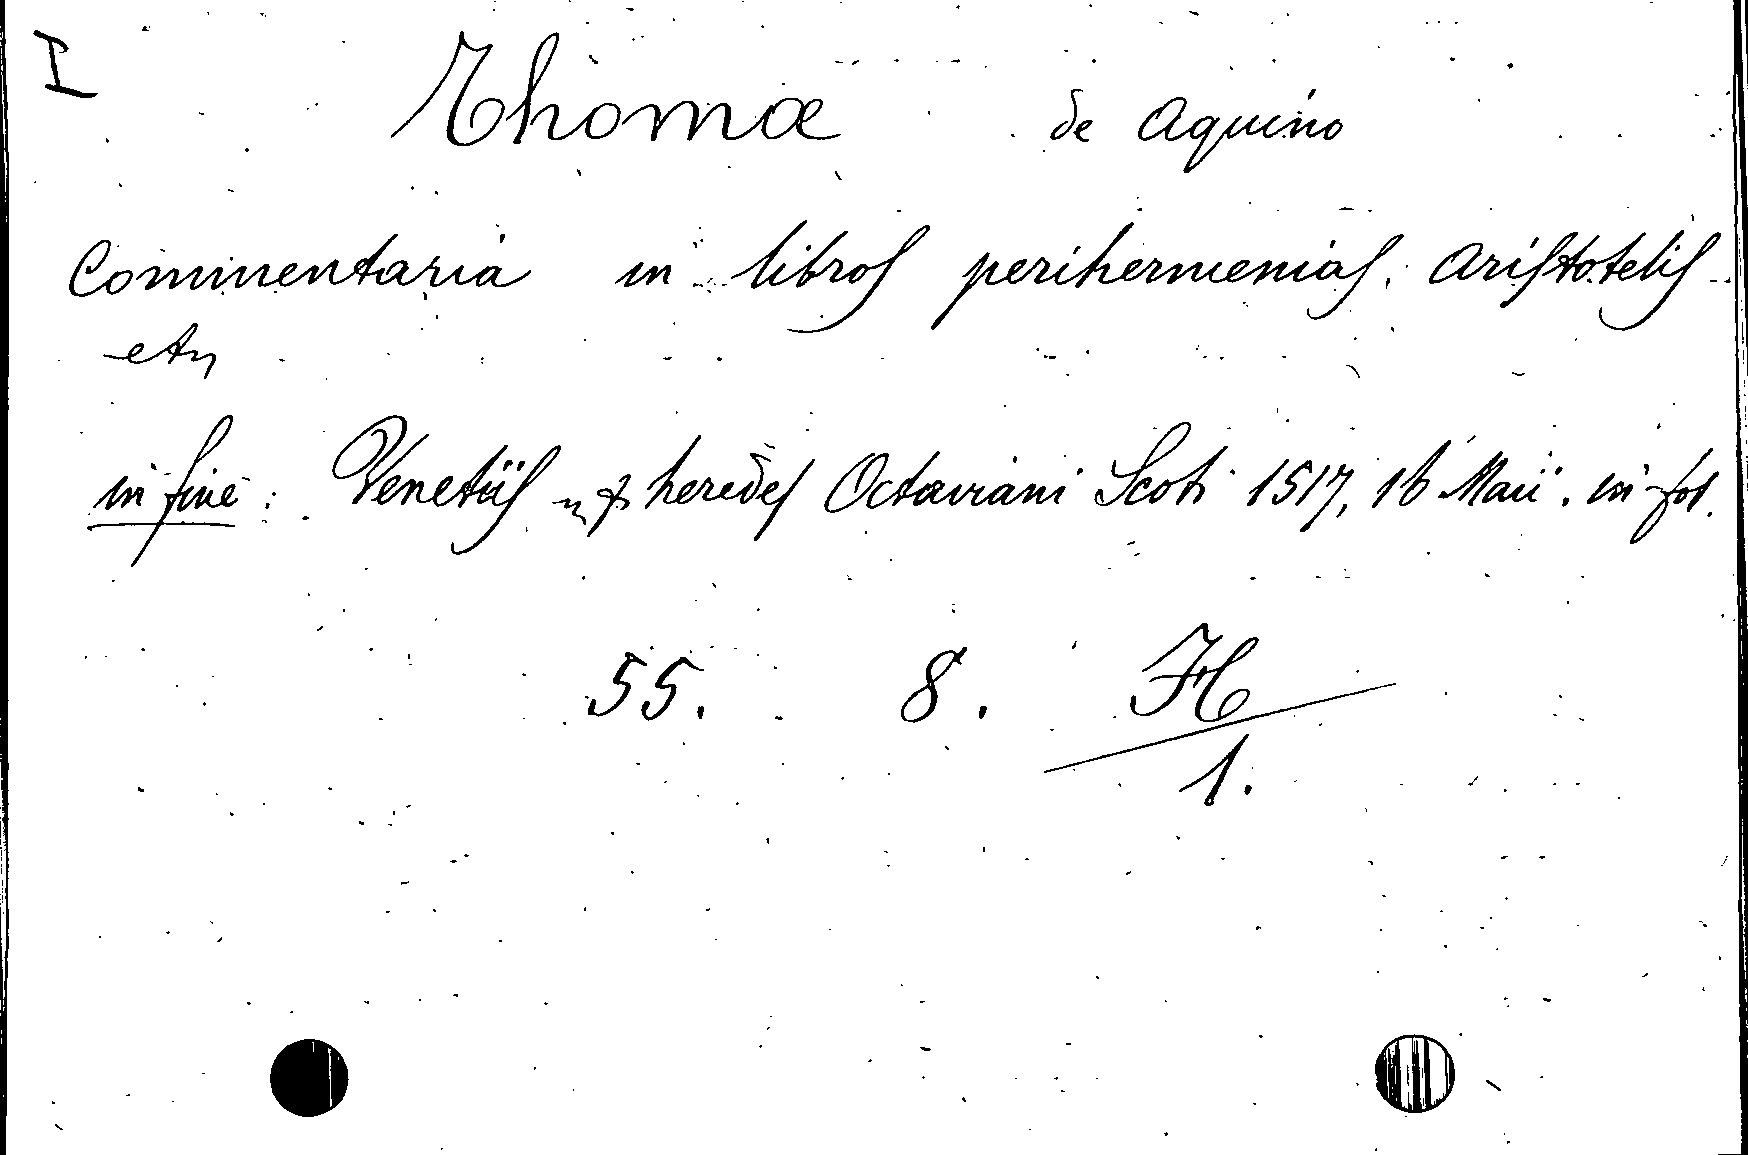 I
Thomæ de Aquino
Commentaria in libros perihermenias Aristotelis
etc
in fine: Venetiis heredes Octaviani Scoti 1517, 16 Maii. in fol.
55. 8. H
1.